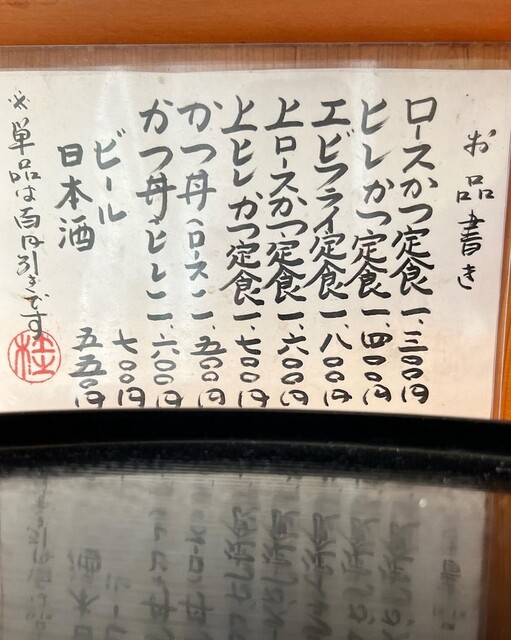 お品書き
ロースかつ定食 一、三〇〇円
ヒレかつ定食 一、四〇〇円
エビフライ定食 一、八〇〇円
上ロースかつ定食 一、六〇〇円
上ヒレかつ定食 一、七〇〇円
かつ丼（ロース） 一、五〇〇円
かつ丼（ヒレ） 一、六〇〇円
ビール 七〇〇円
日本酒 五五〇円
※単品は百円引きです
桂